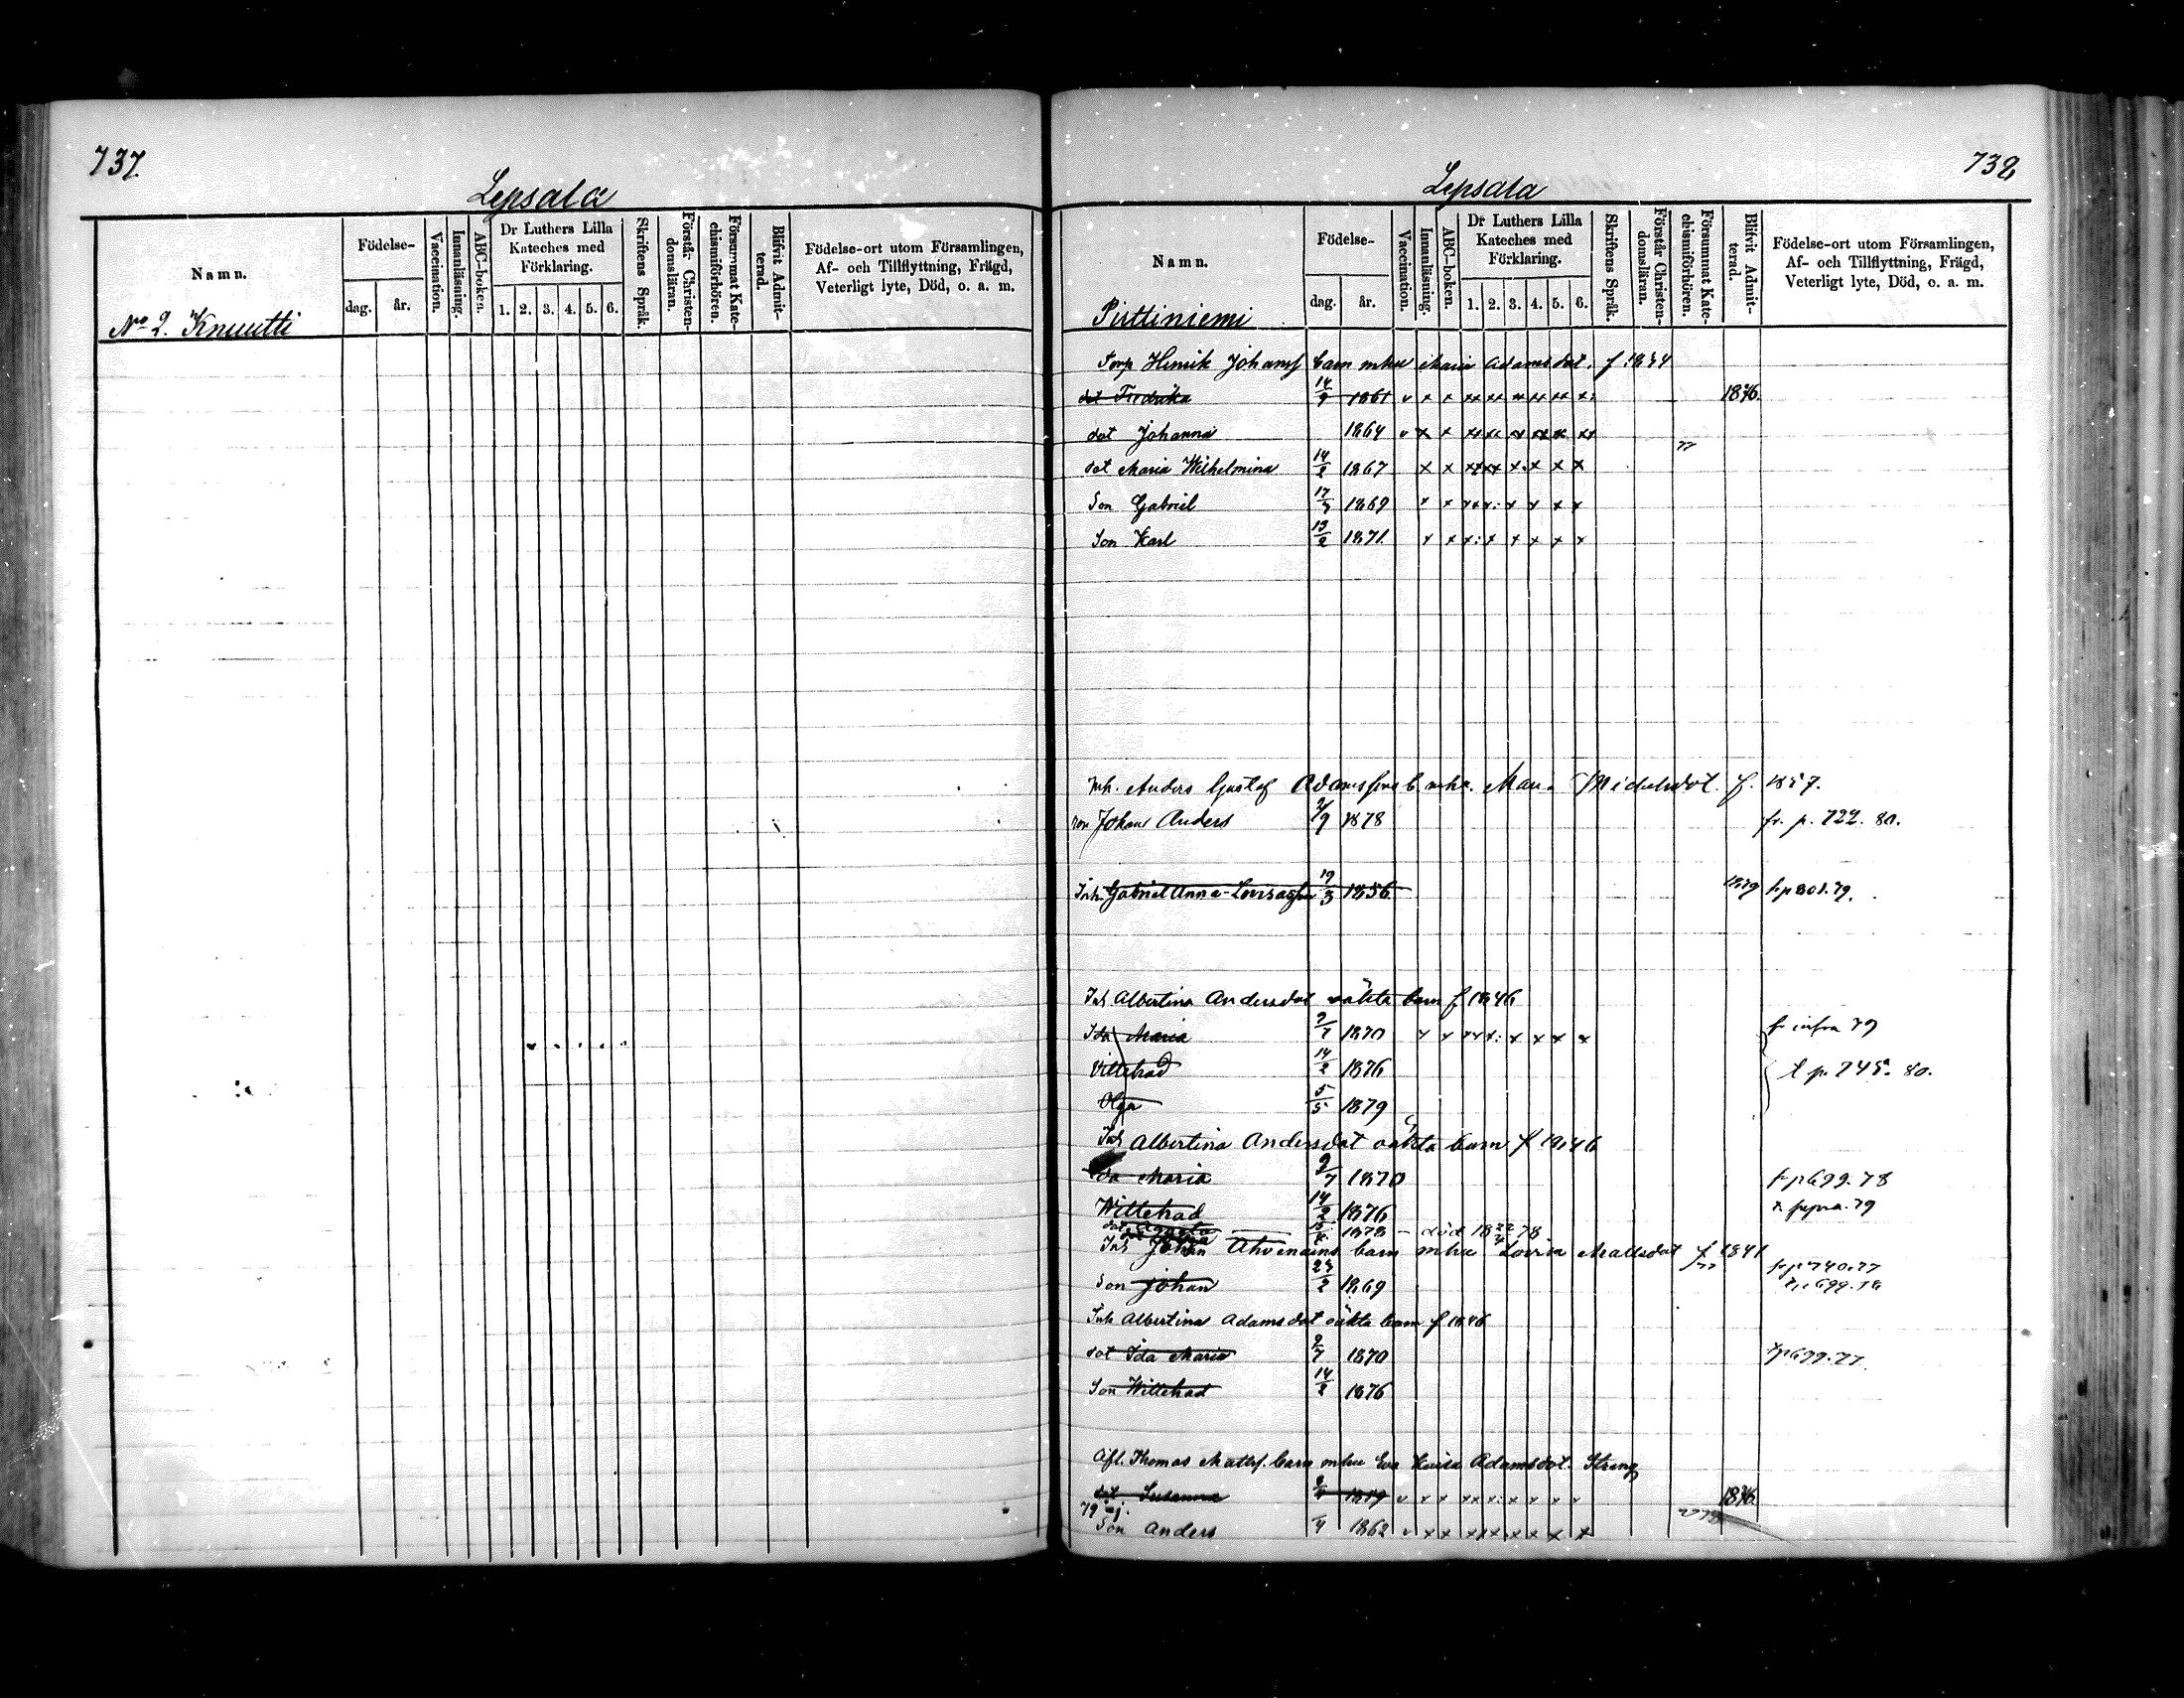 737.
Lepsala
Namn.
Födelse-
dag.
år.
Vaccination.
Innanläsning.
ABC-boken.
Dr Luthers Lilla Kateches med Förklaring.
1. 2. 3. 4. 5. 6.
Skriftens Språk.
Förstår Christendomsläran.
Försummat Katechismiförhören.
Blifvit Admitterad.
Födelse-ort utom Församlingen, Af- och Tillflyttning, Frägd, Veterligt lyte, Död, o. a. m.
No 2. Knuutti
738
Lepsala
Namn.
Födelse-
dag.
år.
Vaccination.
Innanläsning.
ABC-boken.
Dr Luthers Lilla Kateches med Förklaring.
1. 2. 3. 4. 5. 6.
Skriftens Språk.
Förstår Christendomsläran.
Försummat Katechismiförhören.
Blifvit Admitterad.
Födelse-ort utom Församlingen, Af- och Tillflyttning, Frägd, Veterligt lyte, Död, o. a. m.
Pirttiniemi
Torp Henrik Johansf barn mhu Maria Adamsdot. f.
dot Fredrika 1861 v x x xx xx xx xx xx x: 1876.
dot Johanna 1864 v x x xx xx xx xx xx xx 77
dot Maria Wilhelmina 14/2 1867 x x xx xx x x x x
Son Gabriel 1869 x x xx x: x x x x
Son Karl 13/2 1871 x x x: x x x x x
Inh. Anders Gustaf Adamsfons b. mhu. Maria Michelsdot. f. 1857.
son Johan Anders 2/9 1878 fr. p. 722. 80.
Inh. Gabriel Anna-Lovisasson 19/3 1856 1879 fr p 801. 79.
Inh Albertina Andersdot oäkta barn f 1846
Ida Maria 9/7 1870 x x xx x: x x x x fr infra 79
Villehad 14/2 1876 t p. 745. 80.
Olga 5/5 1879
Inh Albertina Andersdot oäkta barn f 1846
Ida Maria 9/7 1870 fr p 699. 78
Willehad 14/2 1876 t supra. 79
dot 1878 – död 78
Inh Johan Ahvenains barn mhu Lovisa Mattsdot f 1841
Son Johan 23/2 1869 fr p 740. 77
t p. 699. 78
Inh Albertina Adamsdot oäkta barn f 1846
dot Ida Maria 9/7 1870 t p 699. 77.
Son Willehad 14/2 1876
Afl. Thomas Mattsf. barn mhu Eva Lovisa Adamsdot. Streng
dot Susanna 1859 v x x xx x: x x x x 1876.
79 ej.
Son Anders 1862 v x x xx x x x x x